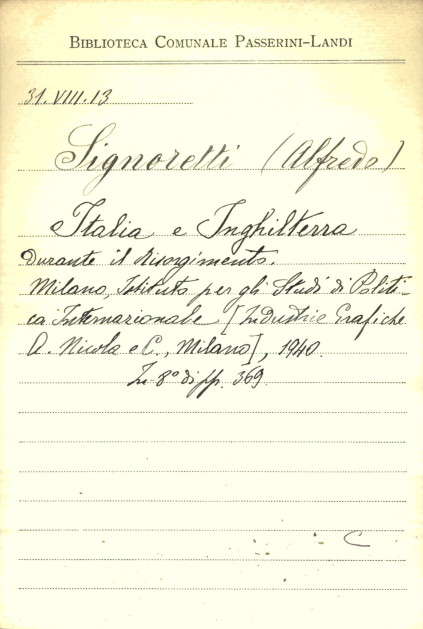 BIBLIOTECA COMUNALE PASSERINI-LANDI
31.VIII.13
Signoretti (Alfredo)
Italia e Inghilterra
Durante il Risorgimento.
Milano, Istituto per gli Studi di Politi-
ca Internazionale [Industrie Grafiche
A. Nicola e C., Milano], 1940.
In 8° di pp. 369.
C